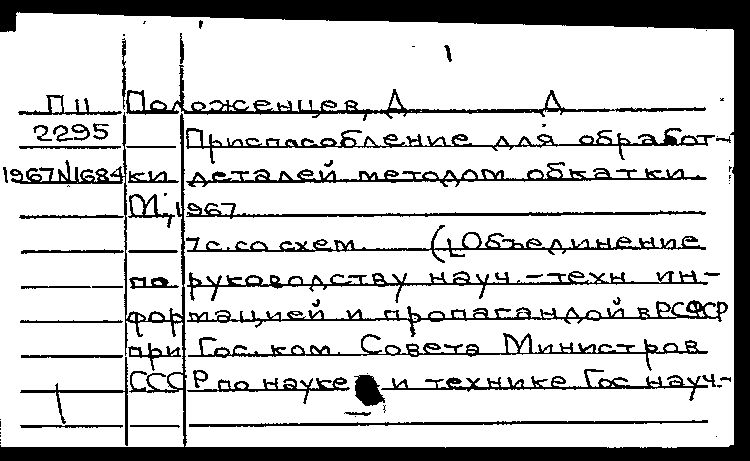 1
П 11 Положенцев, Д Д
2295 Приспособление для обработ-
1967N1684 ки деталей методом обкатки.
М., 1967.
7с.со схем. ([Объединение
по руководству науч.-техн. ин-
формацией и пропагандой в РСФСР
при Гос. ком. Совета Министров
СССР по науке и технике Гос науч-